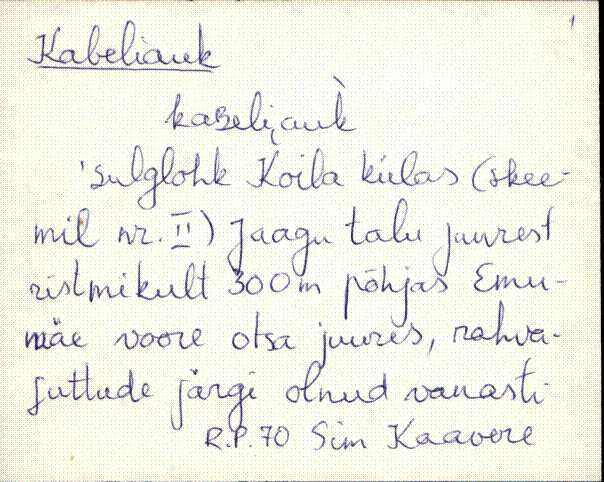 1
Kabeliauk
kaʙeliˬauk̀
'sulglohk Koila külas (skee-
mil nr. II) Jaagu talu juurest
ristmikult 300m põhjas Emu-
mäe voore otsa juures, rahva-
juttude järgi olnud vanasti
R.P. 70 Sim Kaavere